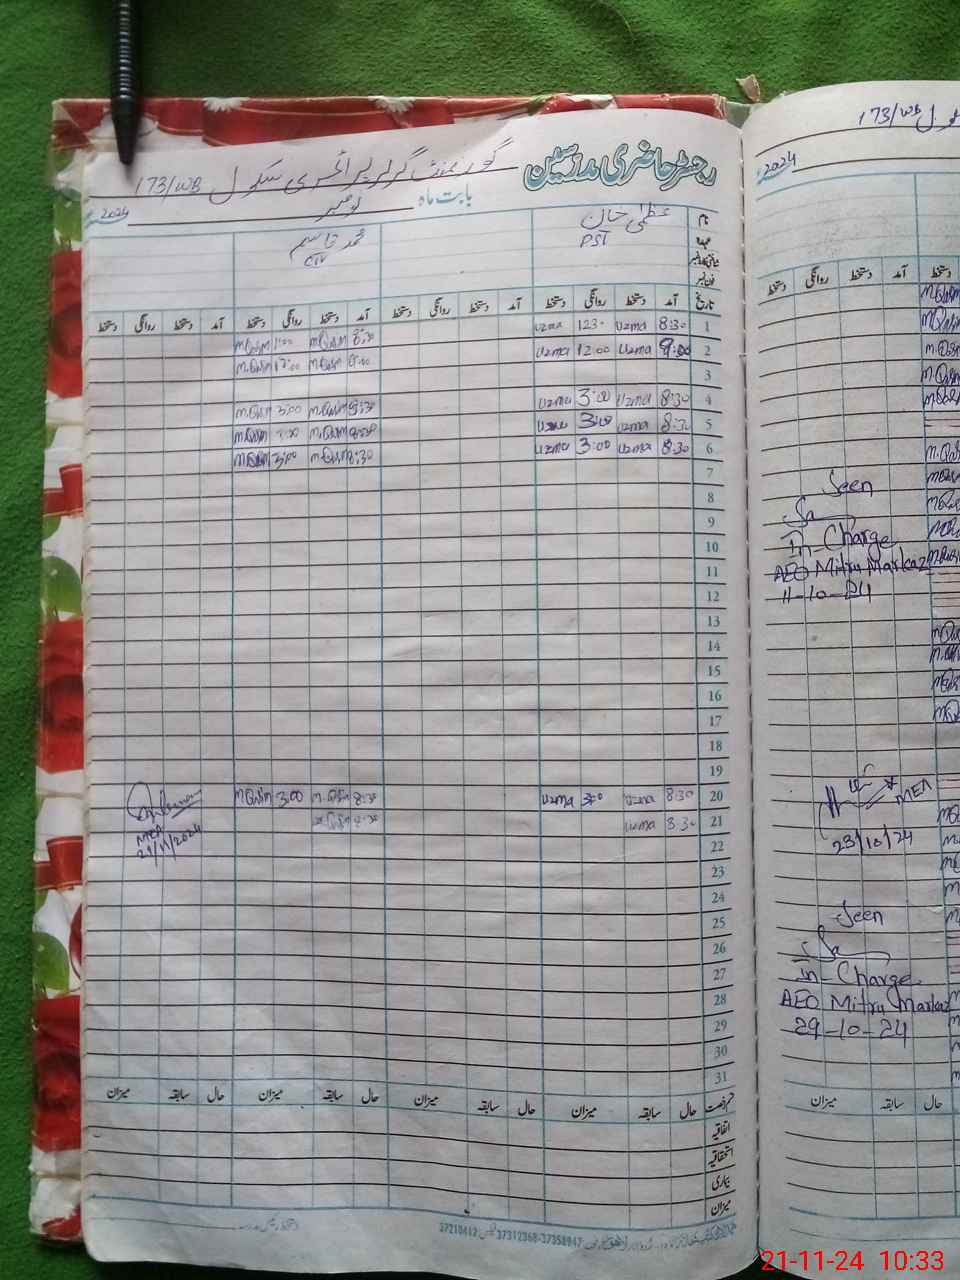 رجسٹر حاضری مدرسین گورنمنٹ گرلز پرائمری سکول 173/WB
بابت ماہ نومبر 2024
نام عظمیٰ خان محمد قاسم
عہدہ PST
تاریخ آمد دستخط روانگی دستخط آمد دستخط روانگی دستخط آمد دستخط روانگی دستخط آمد دستخط روانگی دستخط
1 8:30 uzma 1230 uzma 8:30 M.Qasim 1:00 M.Qasim
2 9:00 uzma 12:00 uzma 9:00 M.Qasim 12:00 M.Qasim
3
4 8:30 uzma 3:00 uzma 8:30 M.Qasim 3:00 M.Qasim
5 8:30 uzma 3:00 uzma 8:30 M.Qasim M.Qasim
6 8:30 uzma 3:00 uzma 8:30 M.Qasim 3:00 M.Qasim
7
8
9
10
11
12
13
14
15
16
17
18
19
20 8:30 uzma 3:00 uzma 8:30 M.Qasim 3:00 M.Qasim
21 8:30 uzma 8:30 M.Qasim
MEA
21/11/2024
22
23
24
25
26
27
28
29
30
31
قسم رخصت حال سابقہ میزان حال سابقہ میزان حال سابقہ میزان حال سابقہ میزان
اتفاقیہ
استحقاقیہ
بیماری
میزان
37210412 37312368-37358947
173/WB
2024
دستخط آمد دستخط روانگی دستخط
Seen
In-Charge
AEO Mitru Markaz
11-10-24
MEA
23/10/24
Seen
In-Charge
AEO Mitru Markaz
29-10-24
حال سابقہ میزان
21-11-24 10:33